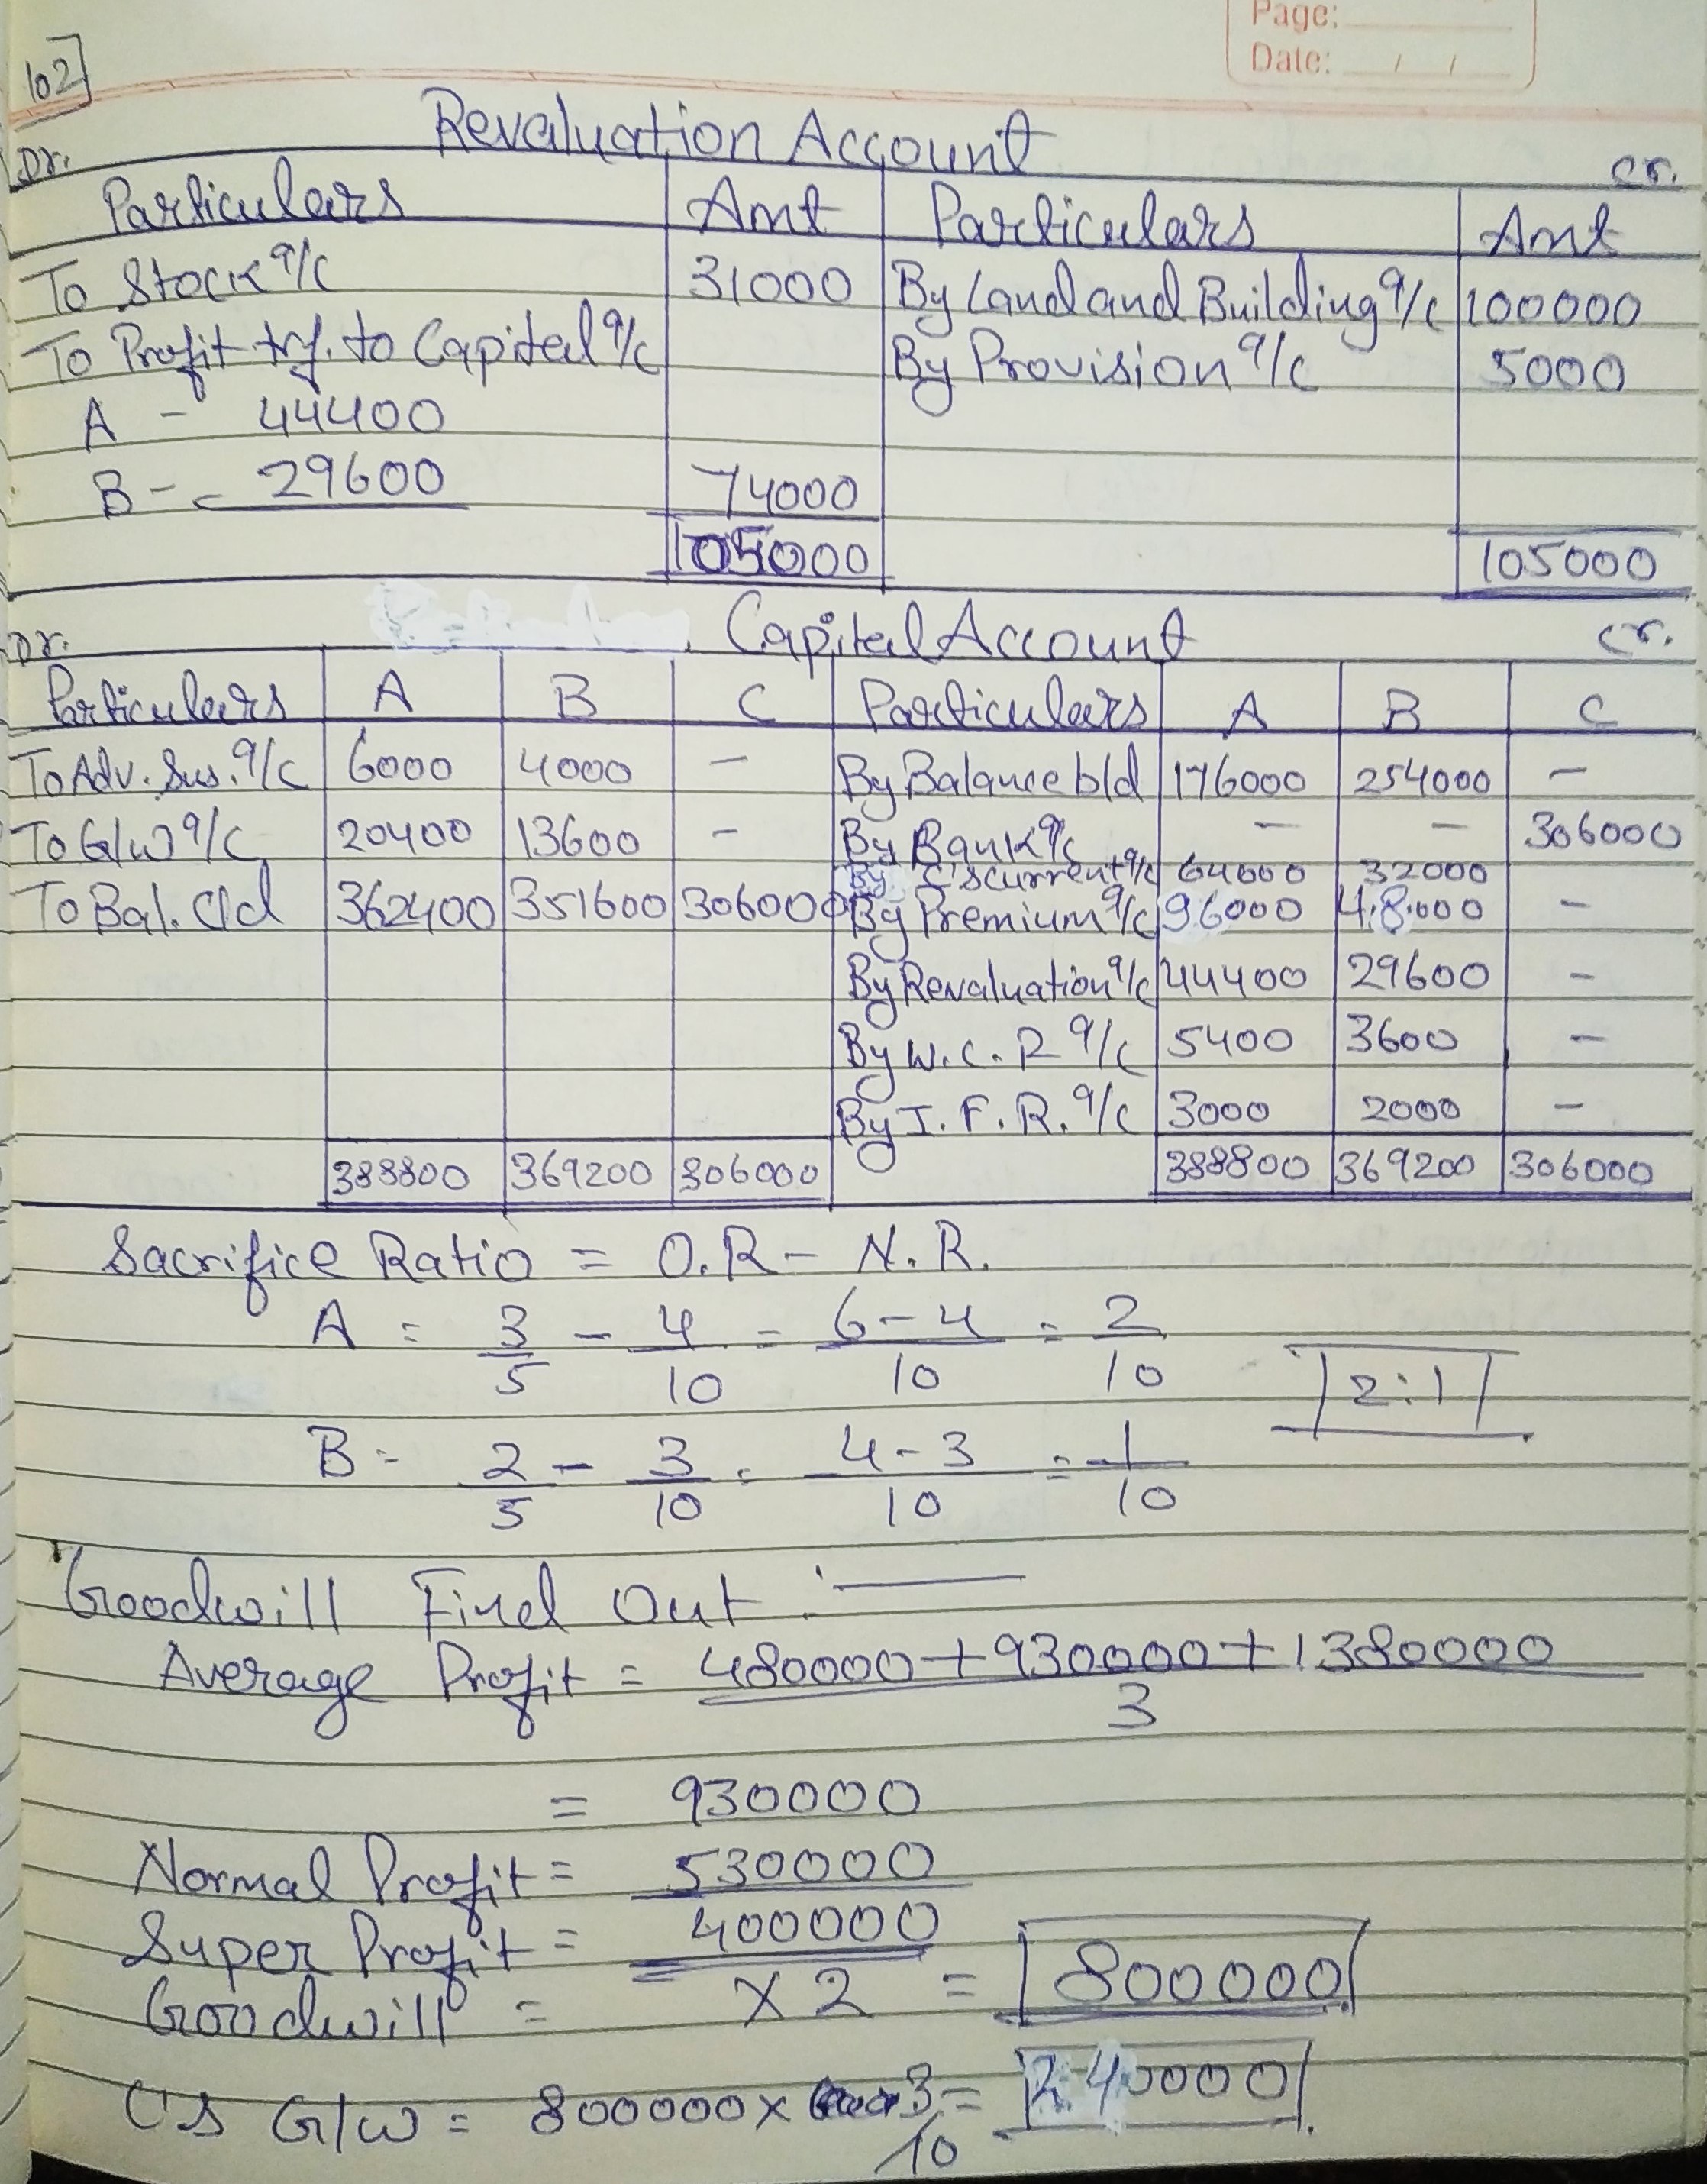 Page:
Date: / /
102
Revaluation Account
Dr. Cr.
Particulars Amt Particulars Amt
To Stock a/c 31000 By Land and Building a/c 100000
To Profit trf. to Capital a/c By Provision a/c 5000
A - 44400
B - 29600 74000
105000 105000
Capital Account
Dr. Cr.
Particulars A B C Particulars A B C
To Adv. Sus. a/c 6000 4000 - By Balance b/d 176000 254000 -
To G/W a/c 20400 13600 - By Bank a/c - - 306000
By C's current a/c 64000 32000
To Bal. c/d 362400 351600 306000 By Premium a/c 96000 48000 -
By Revaluation a/c 44400 29600 -
By W.C.R a/c 5400 3600 -
By I.F.R. a/c 3000 2000 -
388800 369200 306000 388800 369200 306000
Sacrifice Ratio = O.R - N.R.
A = 3/5 - 4/10 = 6-4/10 = 2/10
2:1
B = 2/5 - 3/10 = 4-3/10 = 1/10
Goodwill Find Out :—
Average Profit = 480000+930000+1380000
3
= 930000
Normal Profit = 530000
Super Profit = 400000
Goodwill = X 2 = 800000
C's G/W = 800000 x 3/10 = 240000